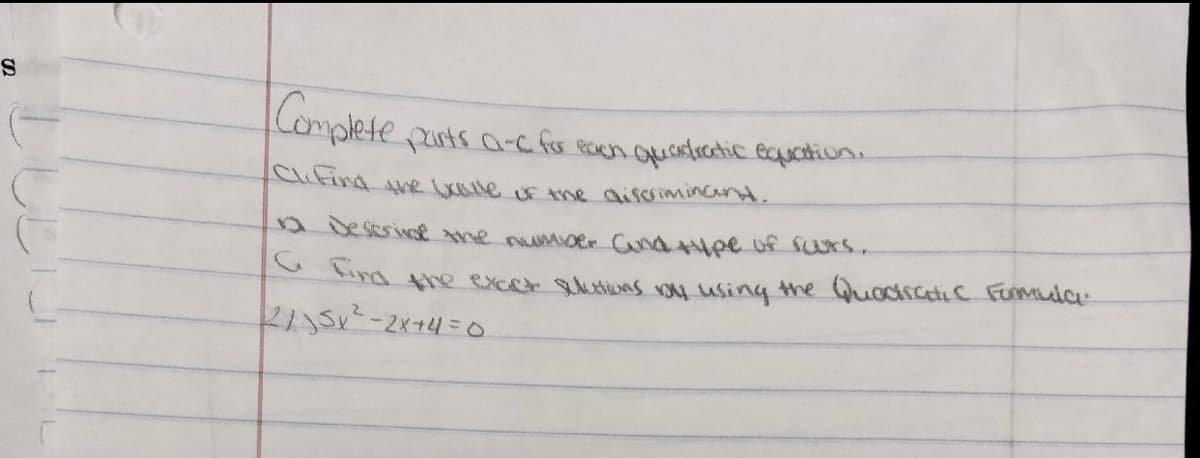 s
Complete parts a-c for each quadratic equation.
a. Find the value of the discriminant.
b Describe the number and type of roots.
C Find the exact solutions by using the Quadratic Formula.
21) 5x² - 2x + 4 = 0